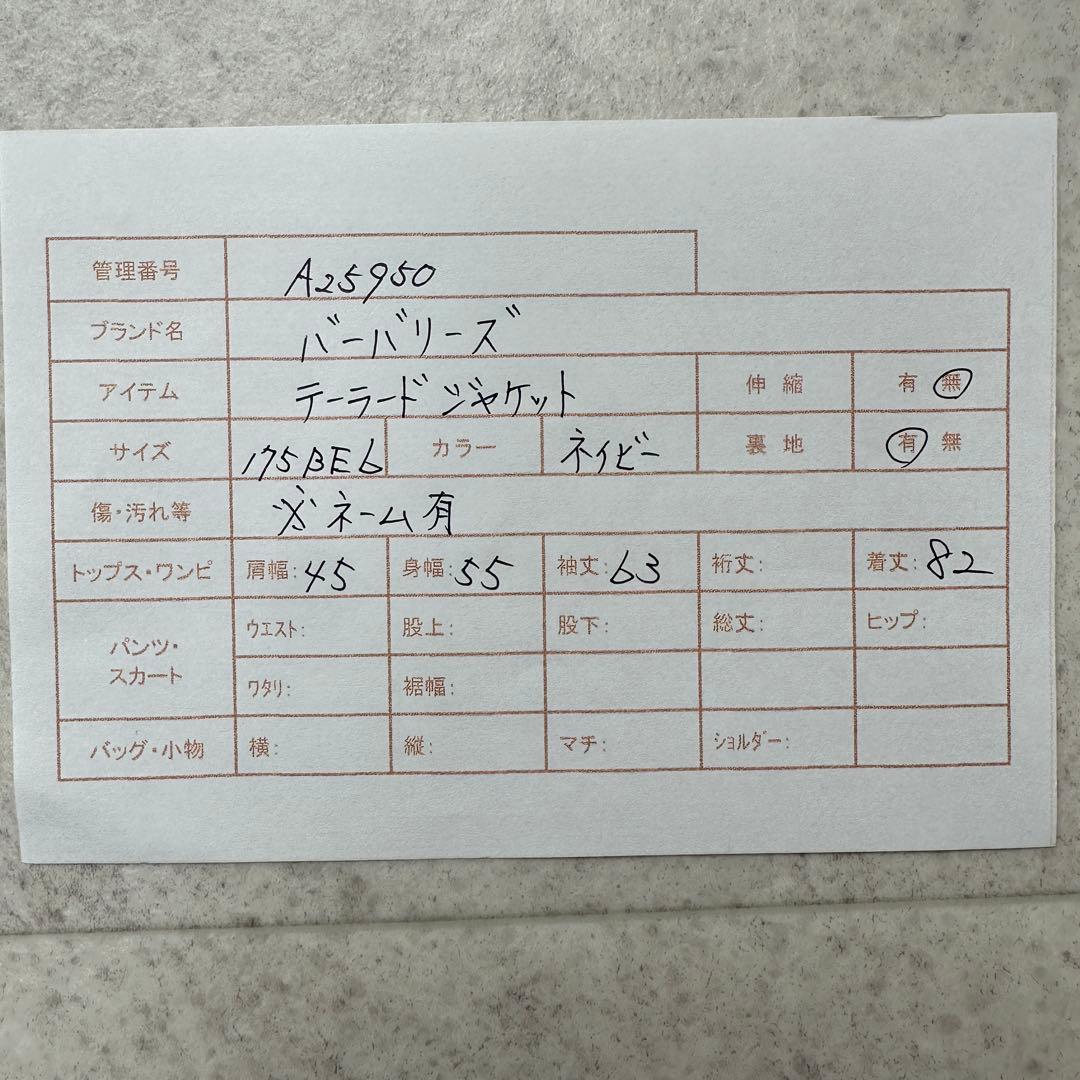 管理番号 A25950
ブランド名 バーバリーズ
アイテム テーラードジャケット 伸縮 有 無
サイズ 175BE6 カラー ネイビー 裏地 有 無
傷・汚れ等 ※ネーム有
トップス・ワンピ 肩幅: 45 身幅: 55 袖丈: 63 裄丈: 着丈: 82
パンツ・スカート ウエスト: 股上: 股下: 総丈: ヒップ:
ワタリ: 裾幅:
バッグ・小物 横: 縦: マチ: ショルダー: